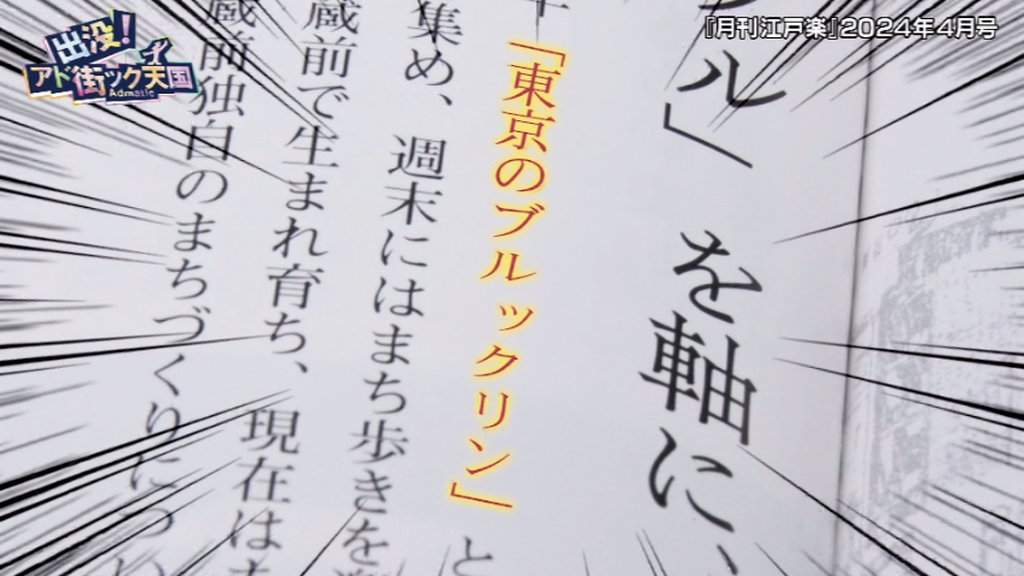 出没!
アド街ック天国
Admatic
『月刊江戸楽』2024年4月号
ル」を軸に、
「東京のブルックリン」と
集め、週末にはまち歩きを
蔵前で生まれ育ち、現在は
蔵前独自のまちづくりについ